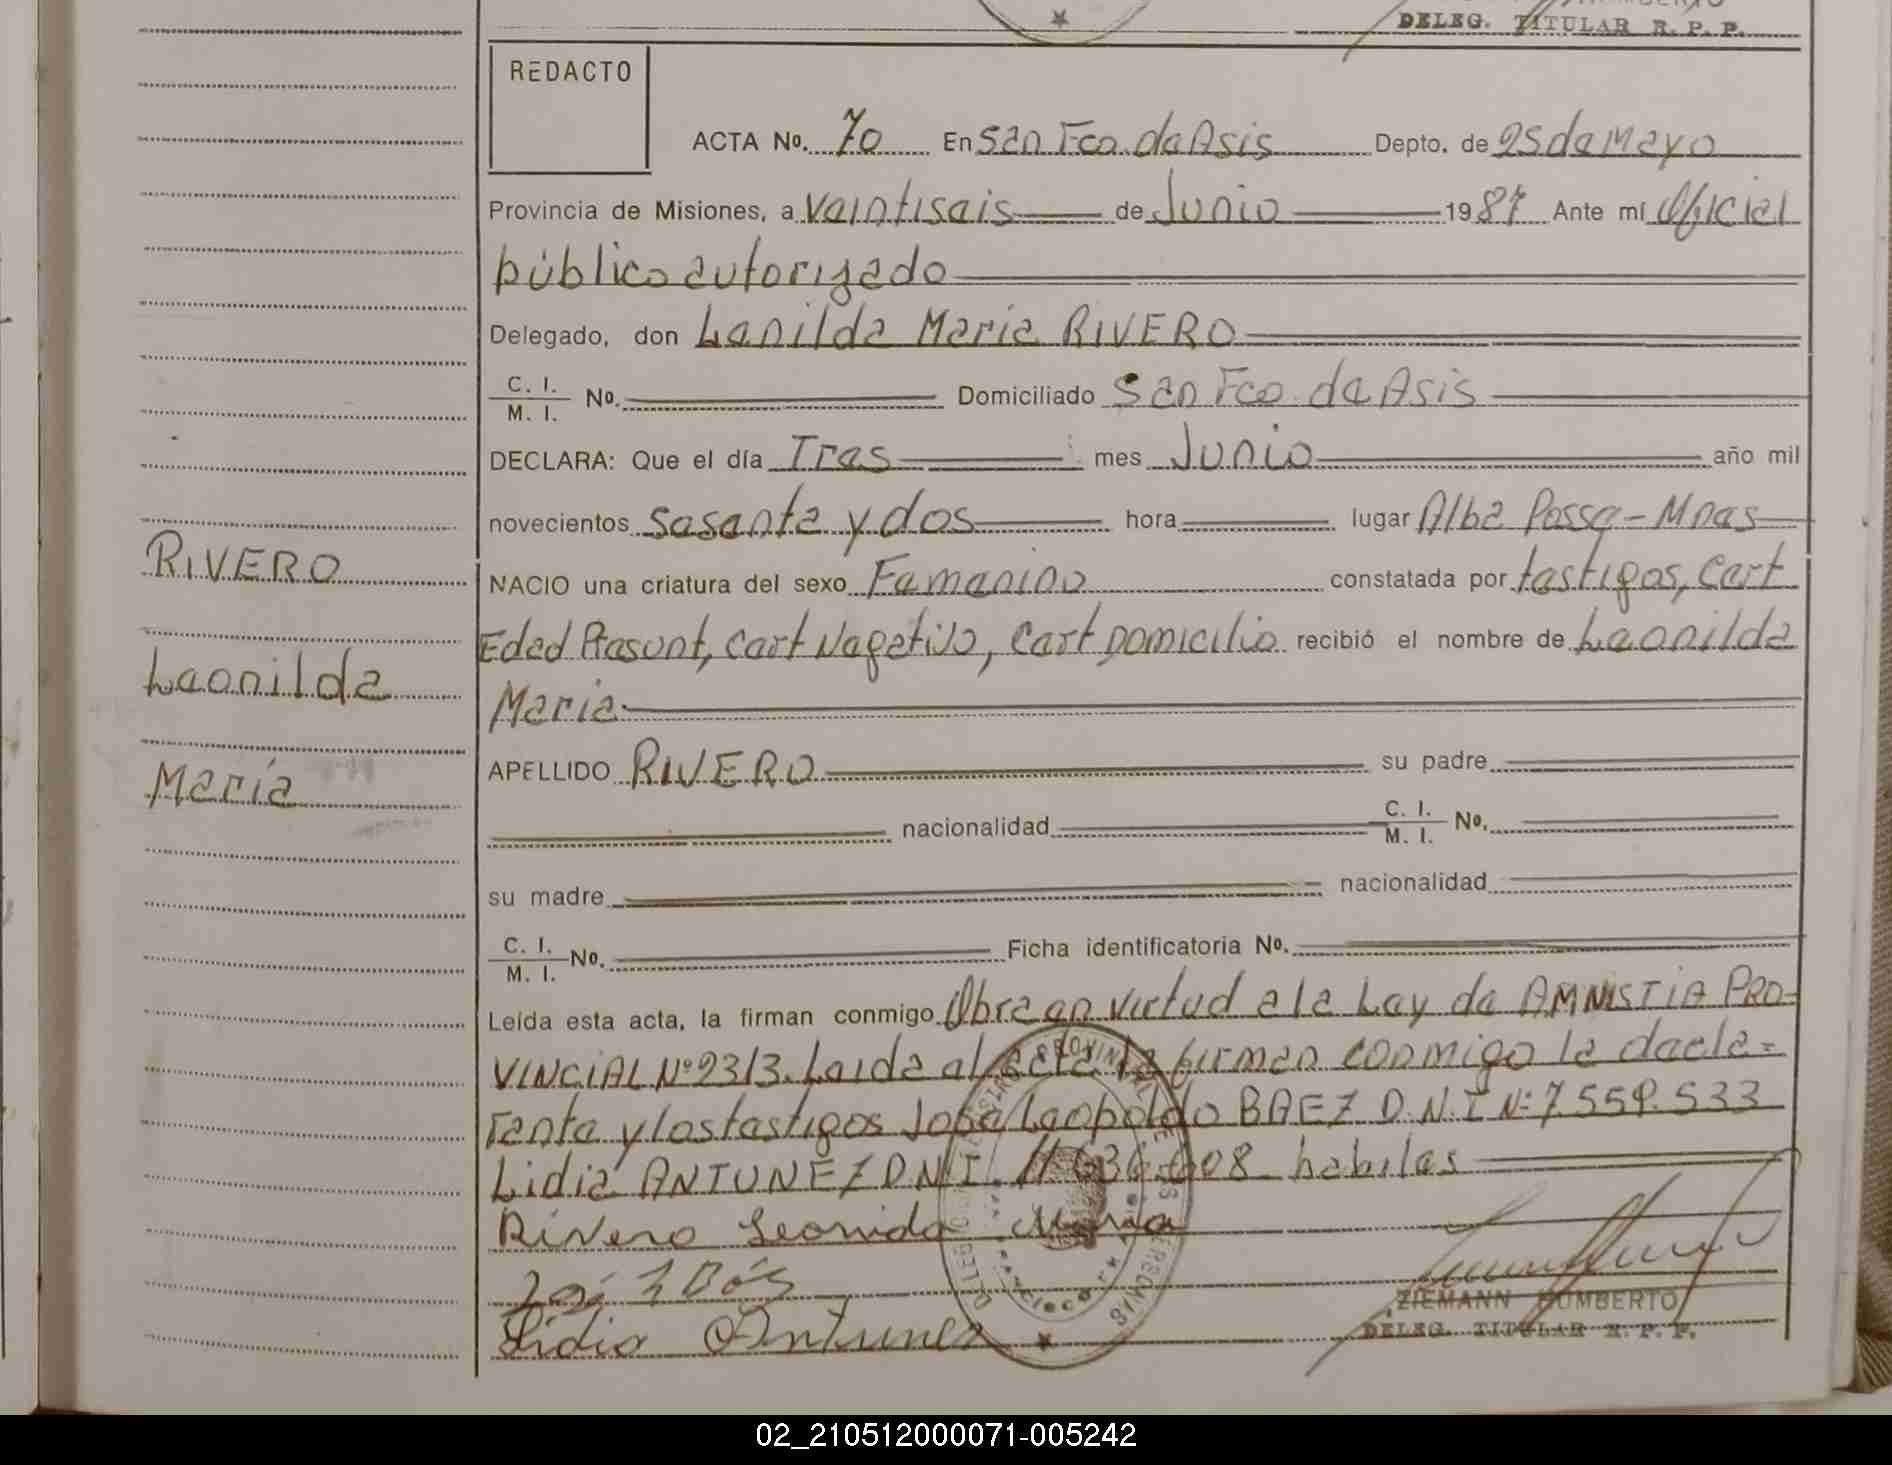 DELEG. TITULAR R. P. P.
REDACTO
ACTA No. 70 En San Fco. de Asis Depto. de 25 de Mayo
Provincia de Misiones, a veintiseis de Junio 1987 Ante mí Oficial
público autorizado
Delegado, don Lenilda Maria RIVERO
C. I.
M. I. No. Domiciliado San Fco. de Asis
DECLARA: Que el día Tres mes Junio año mil
novecientos sesenta y dos hora lugar Alba Posse - Mnes
NACIO una criatura del sexo Femenino constatada por testigos, Cert
Edad Presunt, cert Negativo, Cert Domicilio recibió el nombre de Leonilda
Maria
APELLIDO RIVERO su padre
nacionalidad C. I.
M. I. No.
su madre nacionalidad
C. I.
M. I. No. Ficha identificatoria No.
Leída esta acta, la firman conmigo Obra en virtud a la Ley de AMNISTIA PRO-
VINCIAL Nº 2313. Leida el acta la firman conmigo la decla=
rante y los testigos José Leopoldo BAEZ D.N.I Nº 7.559.533
Lidia ANTUNEZ D.N.I. habiles
Rivero Leonida Maria
Lidia Antunez
ZIEMANN HUMBERTO
DELEG. TITULAR R. P. P.
RIVERO
Leonilda
María
02_210512000071-005242